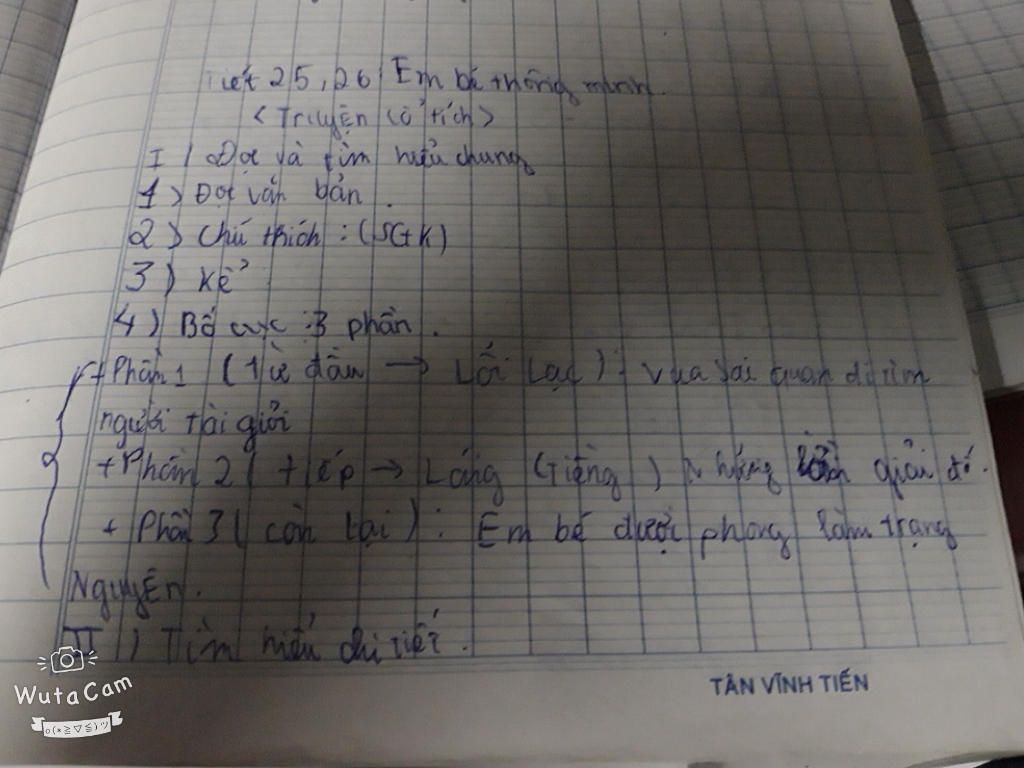 Tiết 25, 26 Em bé thông minh
< Truyện cổ tích >
I / Đọc và tìm hiểu chung
1 ) Đọc văn bản .
2 ) Chú thích : ( SGK )
3 ) Kể
4 ) Bố cục : 3 phần .
+ Phần 1 ( Từ đầu → Lỗi Lạc ) : Vua sai quan đi tìm
người tài giỏi
+ Phần 2 ( tiếp → Láng Giềng ) Những lần giải đố .
+ Phần 3 ( còn lại ) : Em bé được phong làm trạng
Nguyên .
II ) Tìm hiểu chi tiết .
TÂN VĨNH TIẾN
WutaCam
o(*≧▽≦)ツ